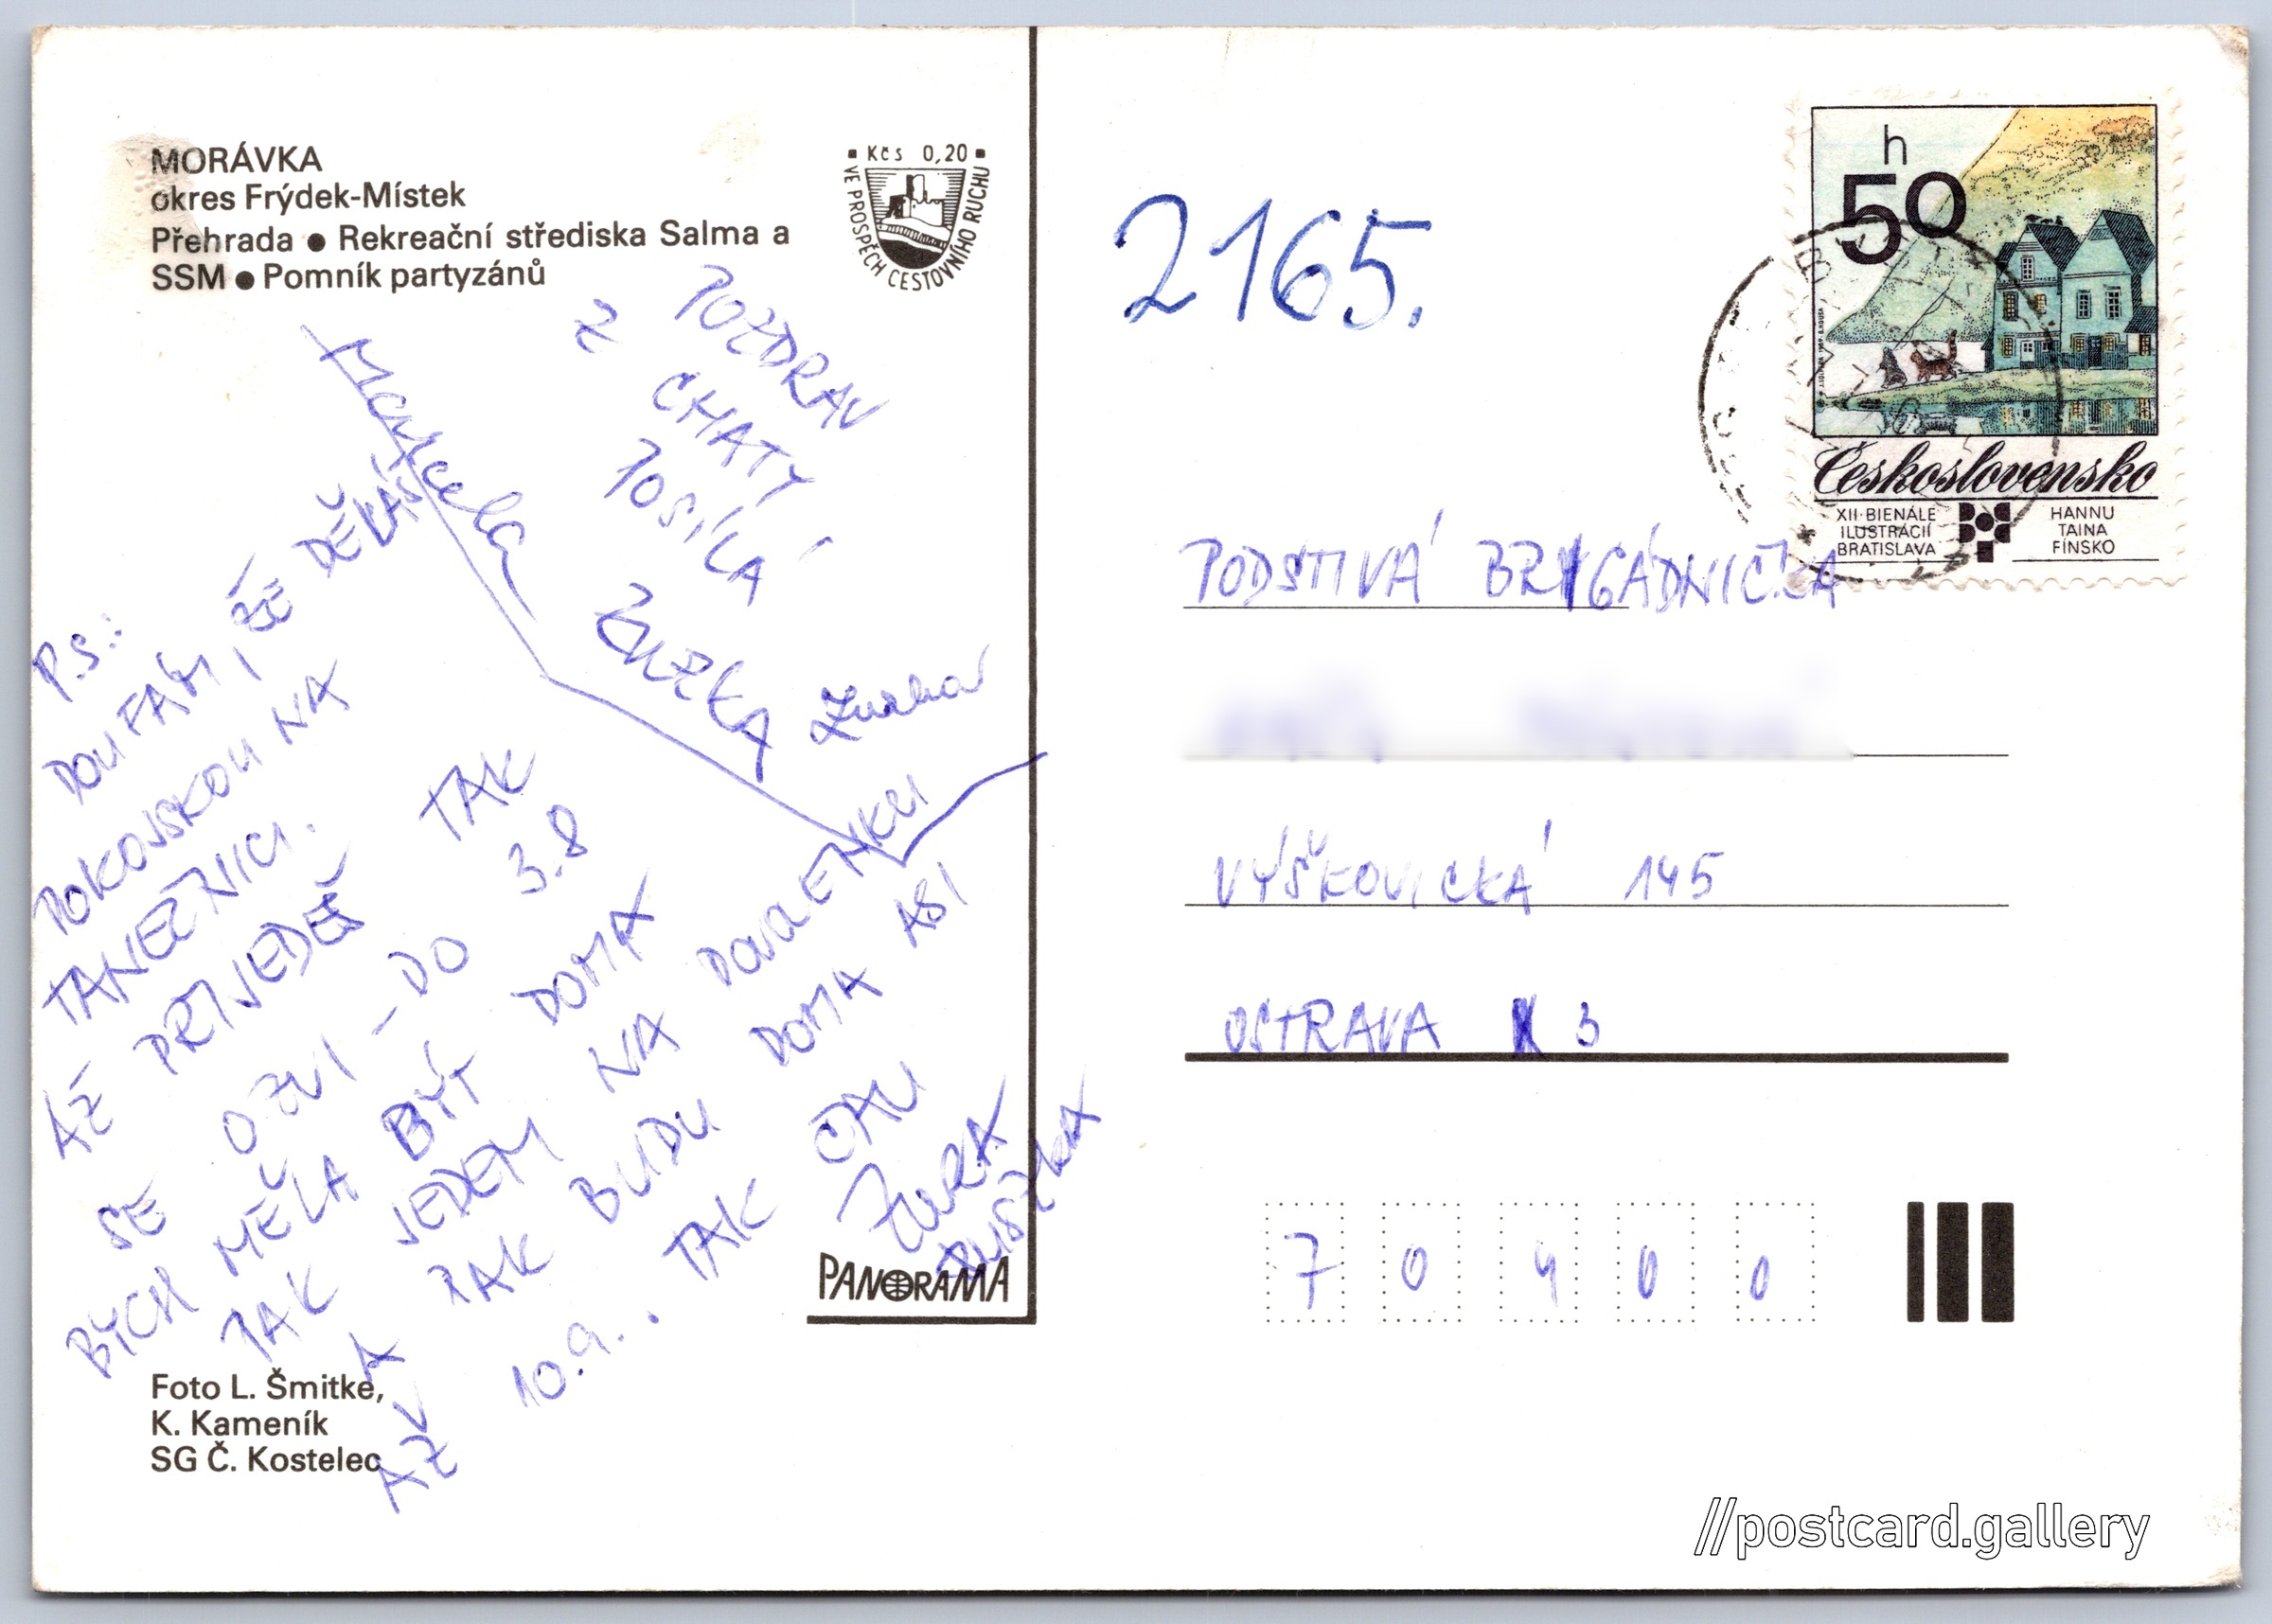 MORÁVKA
okres Frýdek-Místek
Přehrada ● Rekreační střediska Salma a
SSM ● Pomník partyzánů
Kčs 0,20
VE PROSPĚCH CESTOVNÍHO RUCHU
POZDRAV
Z CHATY
POSÍLÁ
ZUZKA
Marcela
P.S.:
DOUFÁM, ŽE DĚLÁŠ
POKOJSKOU NA
TANEČNICI.
AŽ PŘIJEDEŠ TAK
SE OZVI – DO 3.8
BYCH MĚLA BÝT DOMA
PAK JEDEM NA DOVOLENKU
A PAK BUDU DOMA ASI
AŽ V 10.9.. TAK ČAU
PANORAMA
Foto L. Šmitke,
K. Kameník
SG Č. Kostelec
2165.
h
50
Československo
XII·BIENÁLE
ILUSTRÁCIÍ
BRATISLAVA
HANNU
TAINA
FÍNSKO
PODSTIVÁ BRYGÁDNIČKA
VÝŠKOVICKÁ 145
OSTRAVA 3
7 0 4 0 0
//postcard.gallery